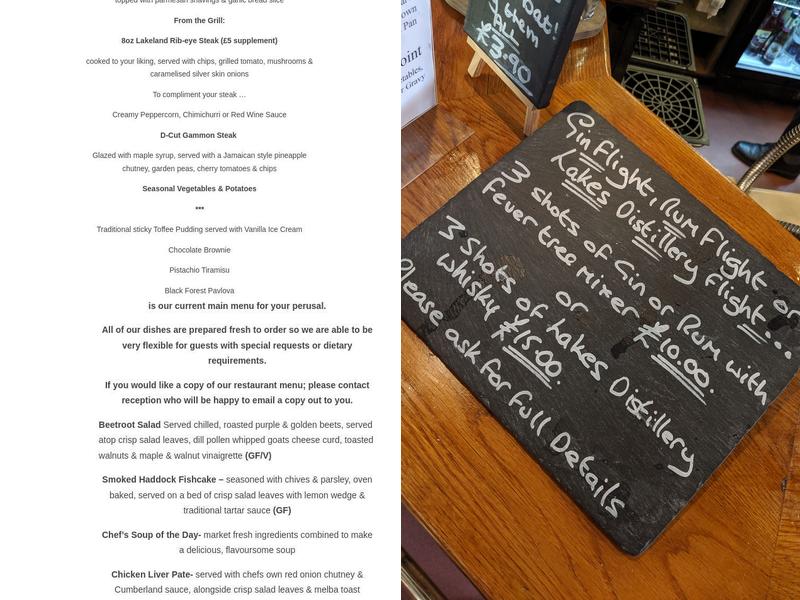 topped with parmesan shavings & garlic bread slice
From the Grill:
8oz Lakeland Rib-eye Steak (£5 supplement)
cooked to your liking, served with chips, grilled tomato, mushrooms &
caramelised silver skin onions
To compliment your steak …
Creamy Peppercorn, Chimichurri or Red Wine Sauce
D-Cut Gammon Steak
Glazed with maple syrup, served with a Jamaican style pineapple
chutney, garden peas, cherry tomatoes & chips
Seasonal Vegetables & Potatoes
***
Traditional sticky Toffee Pudding served with Vanilla Ice Cream
Chocolate Brownie
Pistachio Tiramisu
Black Forest Pavlova
is our current main menu for your perusal.
All of our dishes are prepared fresh to order so we are able to be
very flexible for guests with special requests or dietary
requirements.
If you would like a copy of our restaurant menu; please contact
reception who will be happy to email a copy out to you.
Beetroot Salad Served chilled, roasted purple & golden beets, served
atop crisp salad leaves, dill pollen whipped goats cheese curd, toasted
walnuts & maple & walnut vinaigrette (GF/V)
Smoked Haddock Fishcake – seasoned with chives & parsley, oven
baked, served on a bed of crisp salad leaves with lemon wedge &
traditional tartar sauce (GF)
Chef's Soup of the Day- market fresh ingredients combined to make
a delicious, flavoursome soup
Chicken Liver Pate- served with chefs own red onion chutney &
Cumberland sauce, alongside crisp salad leaves & melba toast
own
Pan
oint
etables,
r Gravy
oat!
1 item
ALL
£3.90
Gin flight, Rum Flight or
Lakes Distillery flight...
3 shots of Gin or Rum with
fever tree mixer £10.00.
or
3 shots of Lakes Distillery
whisky £15.00.
Please ask for full Details